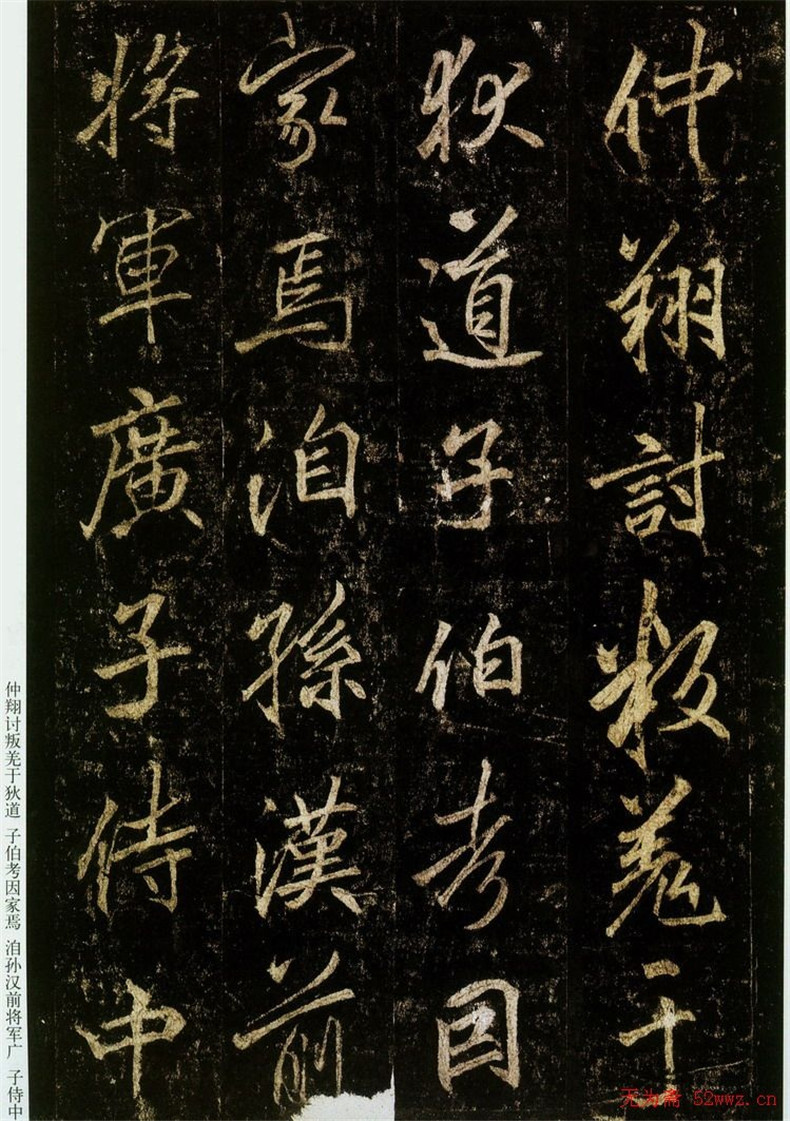 仲翔討叛羌于
狄道子伯考因
家焉洎孫漢前
將軍廣子侍中
仲翔讨叛羌于狄道 子伯考因家焉 洎孙汉前将军广 子侍中
无为斋 52wwz.cn